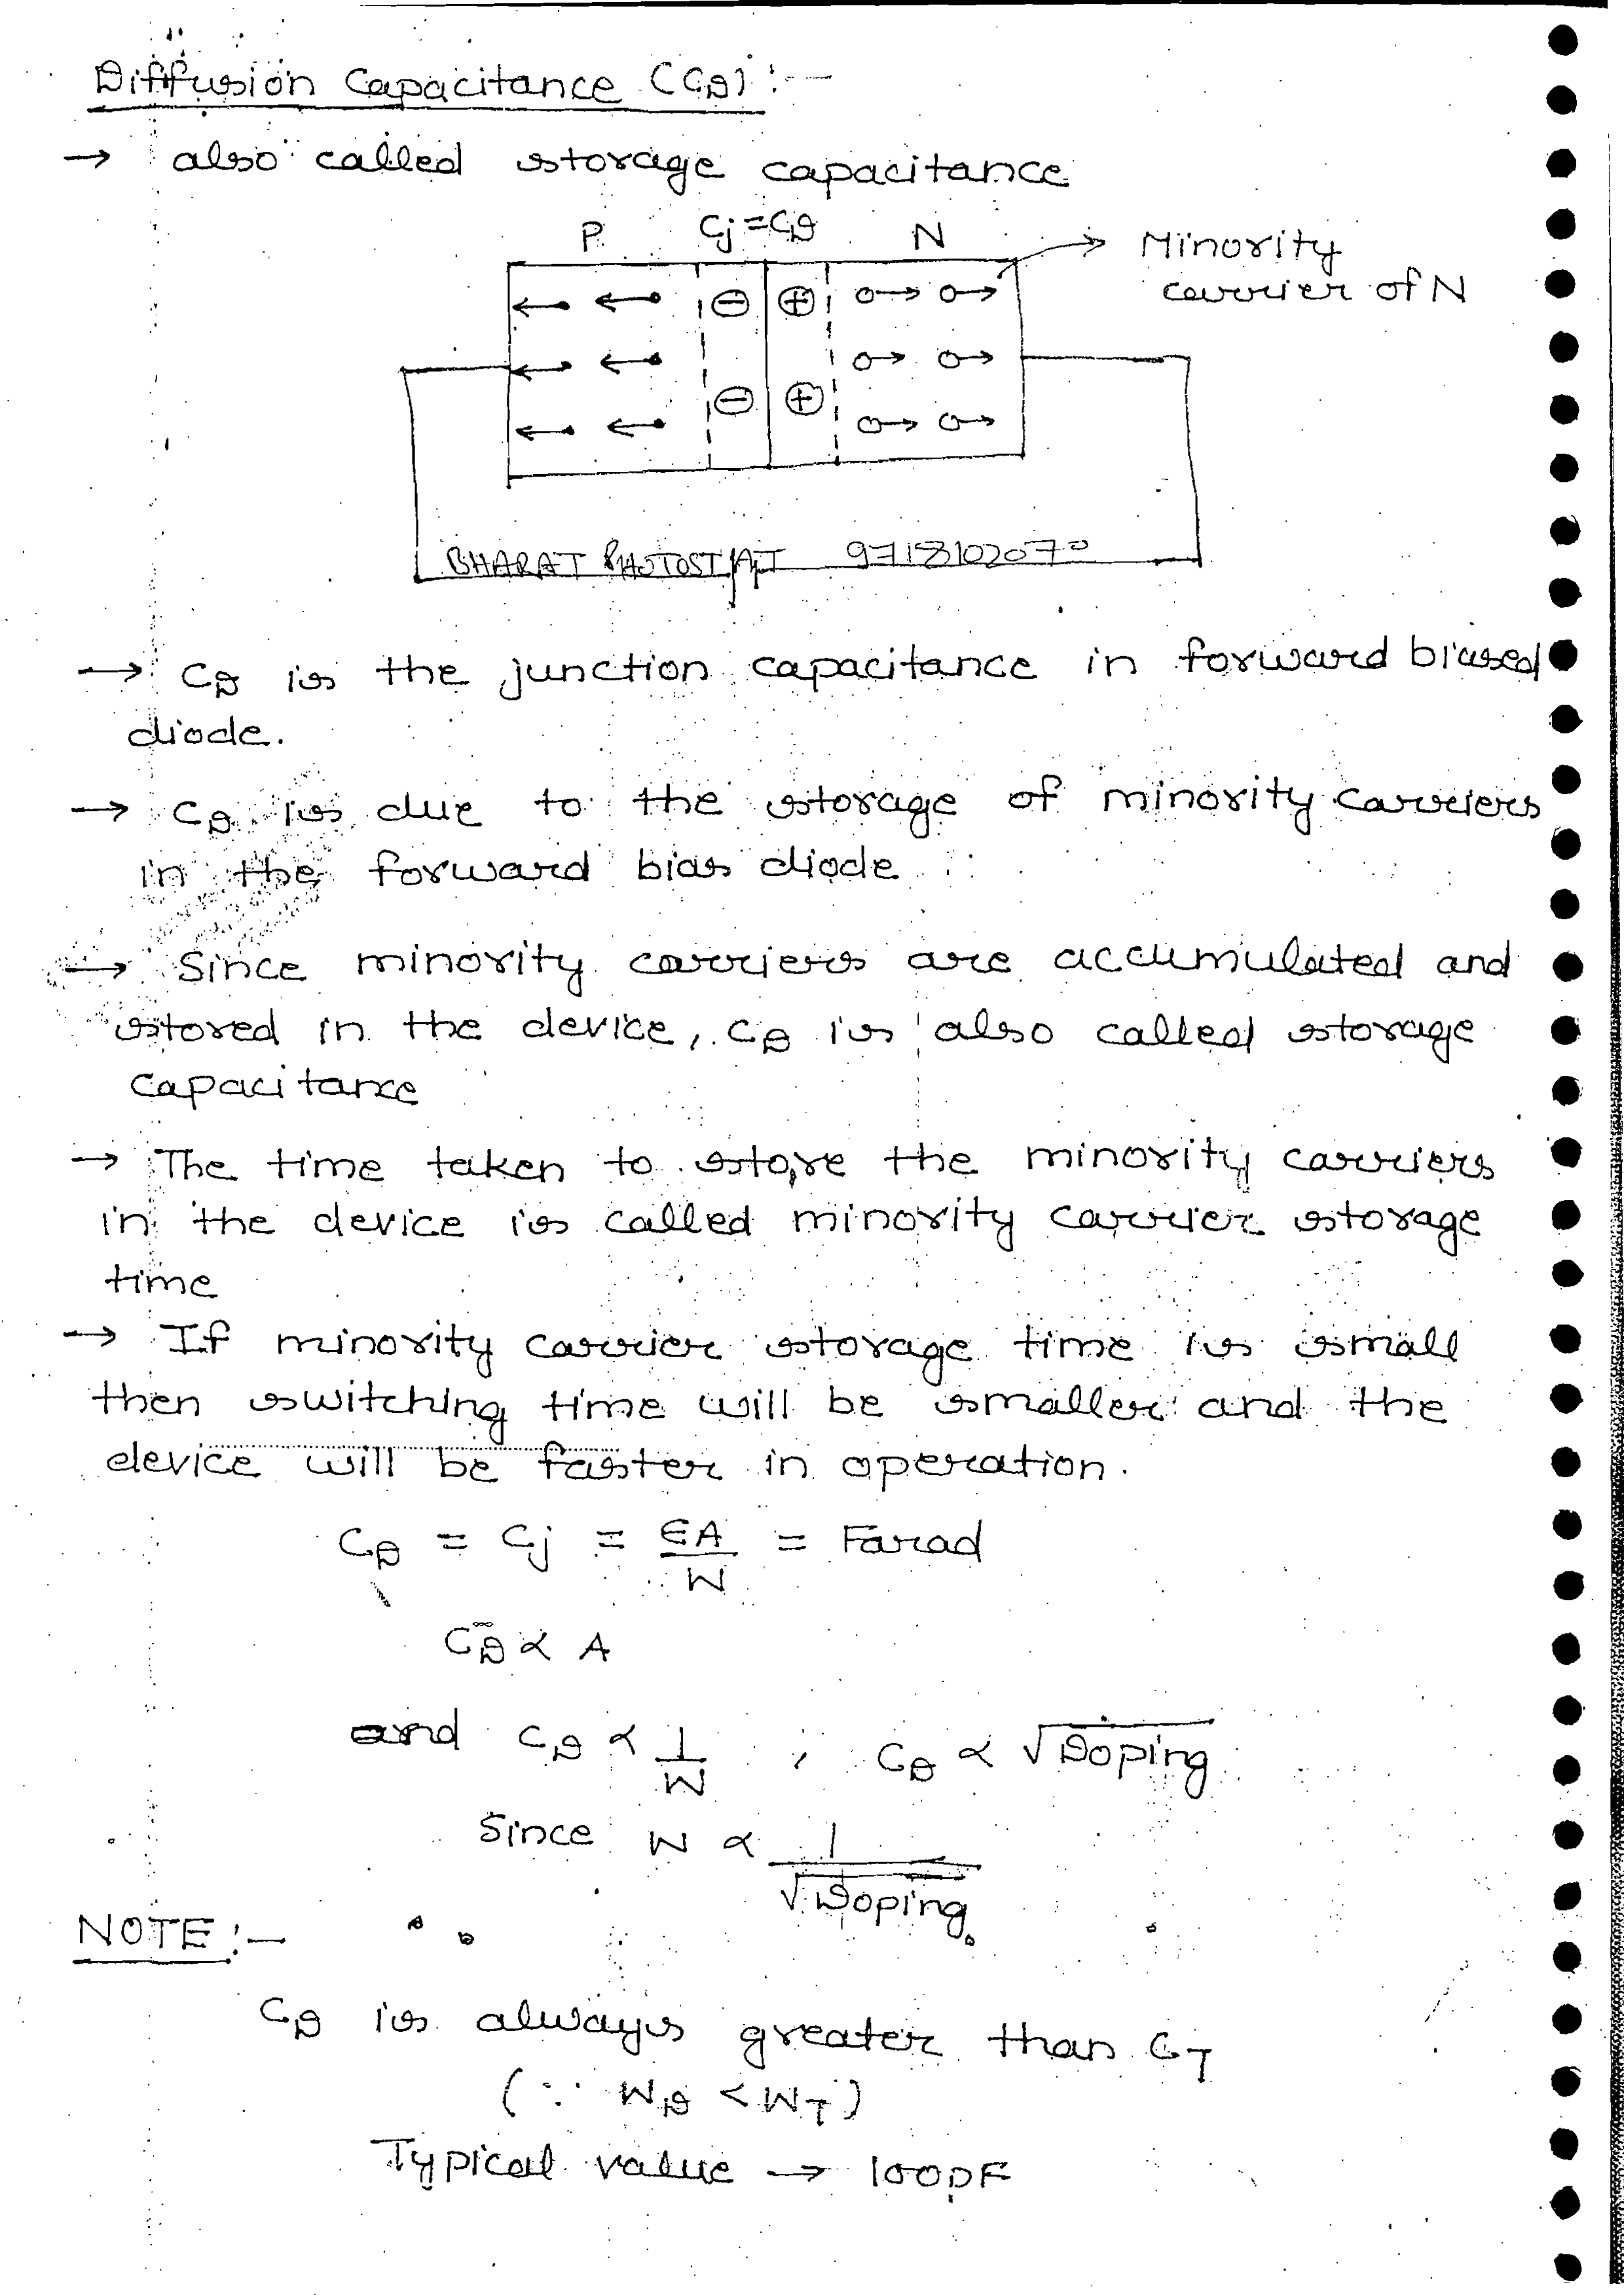 Diffusion Capacitance (CD) :-
→ also called storage capacitance
P Cj = CD N
→ Minority
carrier of N
⊖ ⊕
⊖ ⊕
BHARAT PHOTOSTAT 9718102070
→ CD is the junction capacitance in forward biased
diode.
→ CD is due to the storage of minority carriers
in the forward bias diode
→ Since minority carriers are accumulated and
stored in the device, CD is also called storage
capacitance
→ The time taken to store the minority carriers
in the device is called minority carrier storage
time
→ If minority carrier storage time is small
then switching time will be smaller and the
device will be faster in operation.
CD = Cj = ϵA/W = Farad
CD ∝ A
and CD ∝ 1/W , CD ∝ √Doping
Since W ∝ 1/√Doping
NOTE :-
CD is always greater than CT
(∵ WD < WT)
Typical value → 100pF